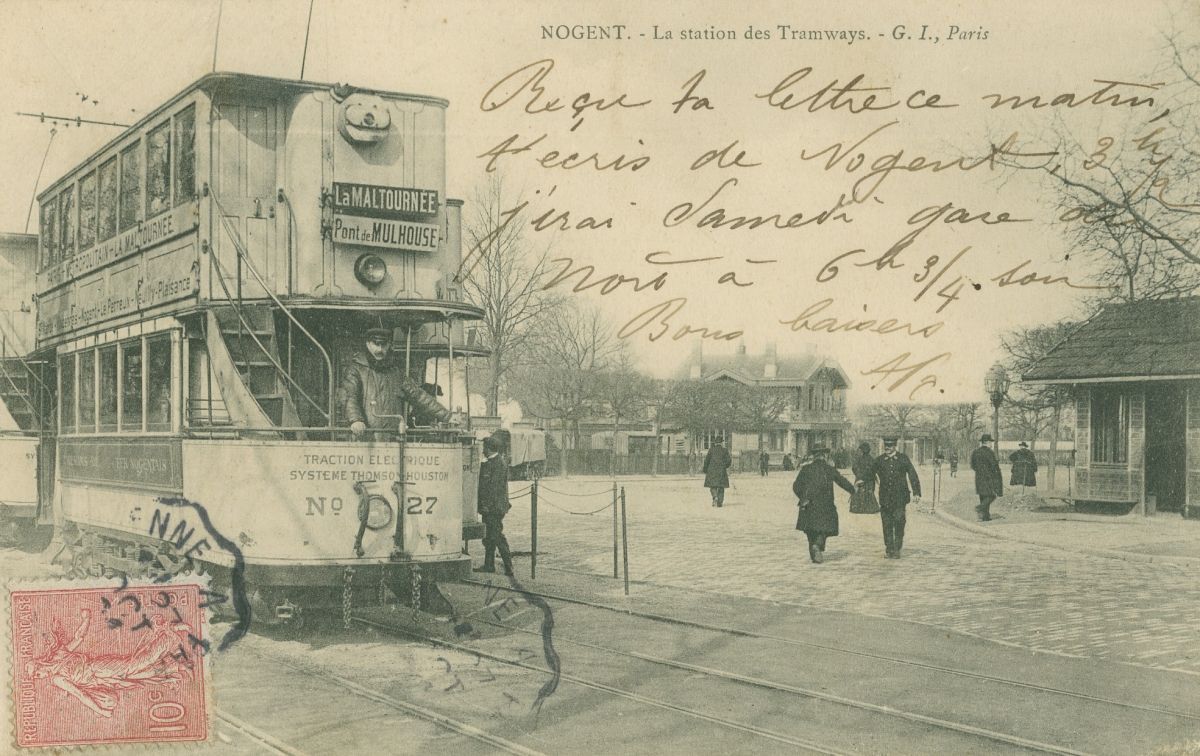 NOGENT. - La station des Tramways. - G. I., Paris
Reçu ta lettre ce matin,
t'écris de Nogent, 3 h 1/2
j'irai Samedi gare du
Nord à 6 h 3/4 soir
Bons baisers
La MALTOURNÉE
Pont de MULHOUSE
PARIS-METROPOLITAIN-LA MALTOURNÉE
Nogent-Le Perreux-Neuilly-Plaisance
NOGENTAIS
TRACTION ELECTRIQUE
SYSTEME THOMSON-HOUSTON
No 27
NNE A
OCT
REPUBLIQUE FRANÇAISE
10c